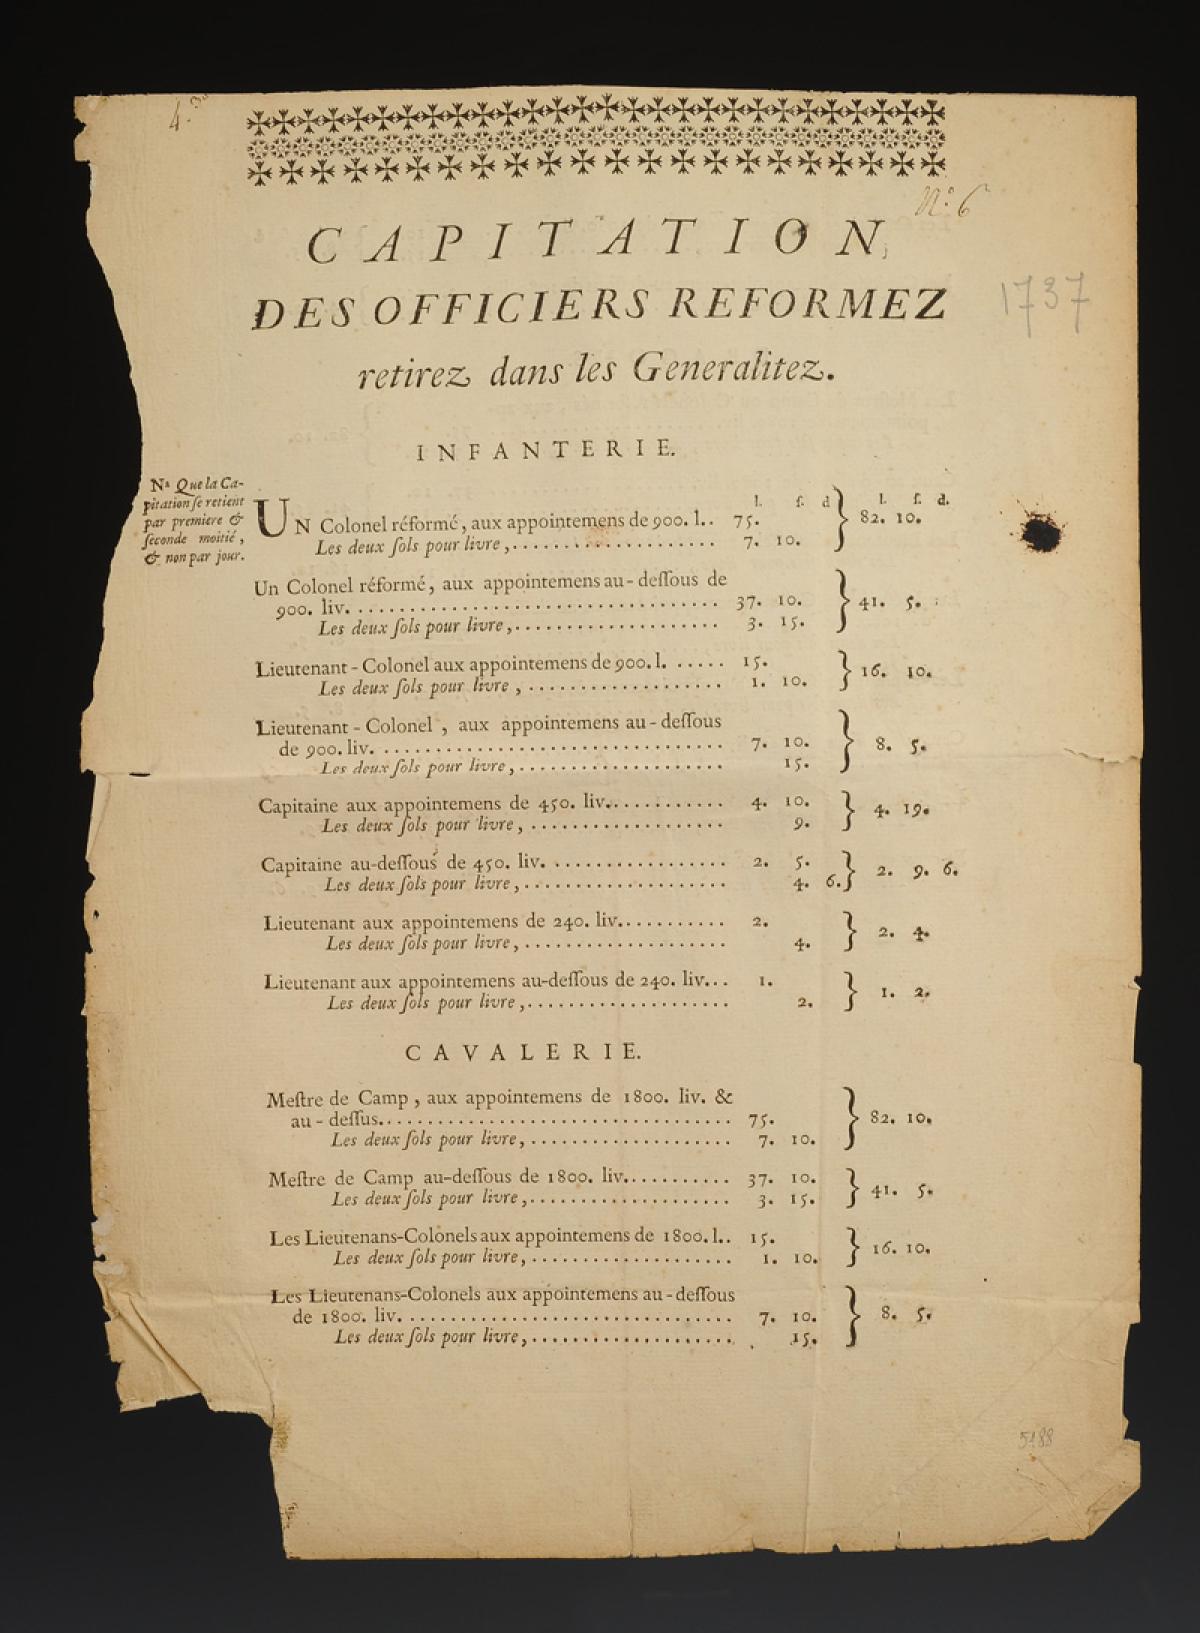 4.
N.º 6
CAPITATION
DES OFFICIERS REFORMEZ
1737
retirez dans les Generalitez.
INFANTERIE.
Nª Que la Ca-
pitation ſe retient
par premiere &
ſeconde moitié,
& non par jour.
l. ſ. d l. ſ. d.
UN Colonel réformé, aux appointemens de 900. l.. 75. } 82. 10.
Les deux ſols pour livre, .................... 7. 10.
Un Colonel réformé, aux appointemens au-deſſous de
900. liv. .................................... 37. 10. } 41. 5.
Les deux ſols pour livre, .................... 3. 15.
Lieutenant-Colonel aux appointemens de 900. l. ..... 15. } 16. 10.
Les deux ſols pour livre, ................... 1. 10.
Lieutenant-Colonel, aux appointemens au-deſſous
de 900. liv. ................................. 7. 10. } 8. 5.
Les deux ſols pour livre, .................... 15.
Capitaine aux appointemens de 450. liv. ........... 4. 10. } 4. 19.
Les deux ſols pour livre, ................... 9.
Capitaine au-deſſous de 450. liv. ................. 2. 5. } 2. 9. 6.
Les deux ſols pour livre, .................... 4. 6.
Lieutenant aux appointemens de 240. liv. .......... 2. } 2. 4.
Les deux ſols pour livre, .................... 4.
Lieutenant aux appointemens au-deſſous de 240. liv... 1. } 1. 2.
Les deux ſols pour livre, .................... 2.
CAVALERIE.
Meſtre de Camp, aux appointemens de 1800. liv. &
au-deſſus. ................................... 75. } 82. 10.
Les deux ſols pour livre, .................... 7. 10.
Meſtre de Camp au-deſſous de 1800. liv. .......... 37. 10. } 41. 5.
Les deux ſols pour livre, .................... 3. 15.
Les Lieutenans-Colonels aux appointemens de 1800. l.. 15. } 16. 10.
Les deux ſols pour livre, .................... 1. 10.
Les Lieutenans-Colonels aux appointemens au-deſſous
de 1800. liv. ................................. 7. 10. } 8. 5.
Les deux ſols pour livre, .................... 15.
5188